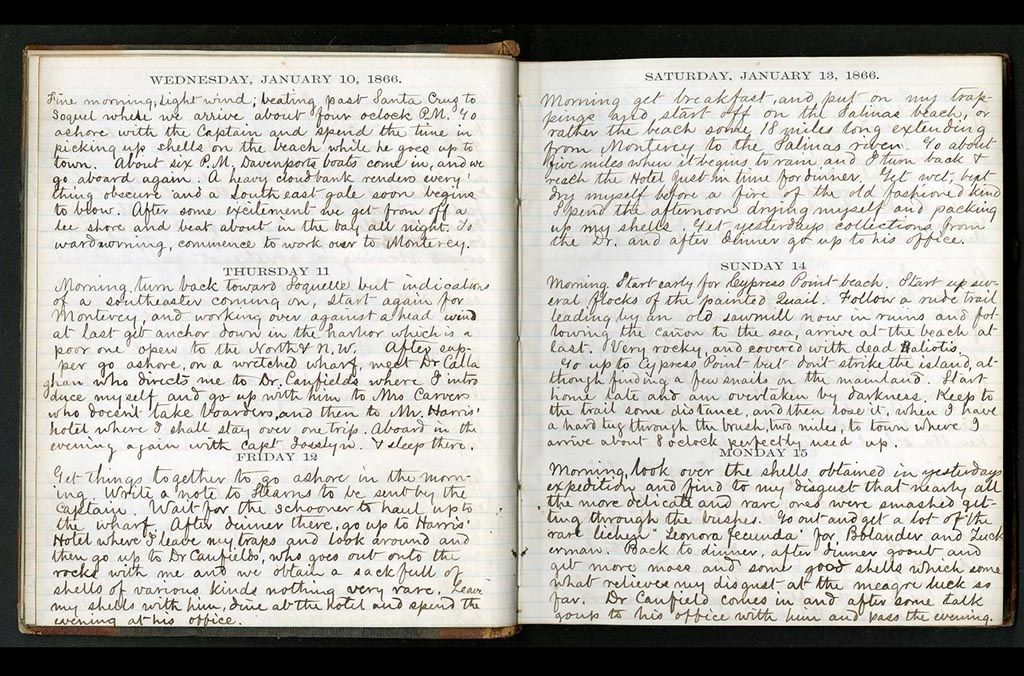 WEDNESDAY, JANUARY 10, 1866.
Fine morning, light wind; beating past Santa Cruz to
Soquel where we arrive about four oclock P.M. Go
ashore with the Captain and spend the time in
picking up shells on the beach while he goes up to
town. About six P.M. Davenports boats come in, and we
go aboard again. A heavy cloud bank renders every
thing obscure and a South east gale soon begins
to blow. After some excitement we get from off a
lee shore and beat about in the bay all night. To
ward morning, commence to work over to Monterey.
THURSDAY 11
Morning, turn back toward Soquelle but indications
of a southeaster coming on, start again for
Monterey, and working over against a head wind
at last get anchor down in the harbor which is a
poor one open to the North & N.W. After sup-
per go ashore, on a wretched wharf, meet Dr Calla
ghan who directs me to Dr. Canfields where I intro
duce myself and go up with him to Mrs Carvers
who doesnt take boarders, and then to Mr. Harris'
hotel where I shall stay over one trip. Aboard in the
evening again with Capt Josselyn. & sleep there.
FRIDAY 12
Get things together to go ashore in the morn-
ing. Write a note to Stearns to be sent by the
Captain. Wait for the schooner to haul up to
the wharf. After dinner there, go up to Harris'
Hotel where I leave my traps and look around and
then go up to Dr Canfields, who goes out onto the
rocks with me and we obtain a sack full of
shells of various kinds nothing very rare. Leave
my shells with him, dine at the hotel and spend the
evening at his office.
SATURDAY, JANUARY 13, 1866.
Morning get breakfast, and put on my trap-
pings and start off on the Salinas beach, or
rather the beach some 18 miles long extending
from Monterey to the Salinas river. Go about
five miles when it begins to rain and I turn back &
reach the Hotel just in time for dinner. Get wet, but
dry myself before a fire of the old fashioned kind
Spend the afternoon drying myself and packing
up my shells. Get yesterdays collections from
the Dr. and after dinner go up to his office.
SUNDAY 14
Morning Start early for Cypress Point beach. Start up sev-
eral flocks of the painted Quail. Follow a rude trail
leading by an old sawmill now in ruins and fol-
lowing the cañon to the sea, arrive at the beach at
last. Very rocky, and covered with dead Haliotis.
Go up to Cypress Point but dont strike the island, al-
though finding a few snails on the mainland. Start
home late and am overtaken by darkness. Keep to
the trail some distance, and then lose it, when I have
a hard tug through the brush, two miles, to town where I
arrive about 8 oclock perfectly used up.
MONDAY 15
Morning, look over the shells obtained in yesterdays
expedition and find to my disgust that nearly all
the more delicate and rare ones were smashed get-
ting through the bushes. Go out and get a lot of the
rare lichen "Leonora fecunda" for Bolander and Tuck
erman. Back to dinner, after dinner go out and
get more moss and some good shells which some
what relieves my disgust at the meagre luck so
far. Dr Canfield comes in and after some talk
go up to his office with him and pass the evening.